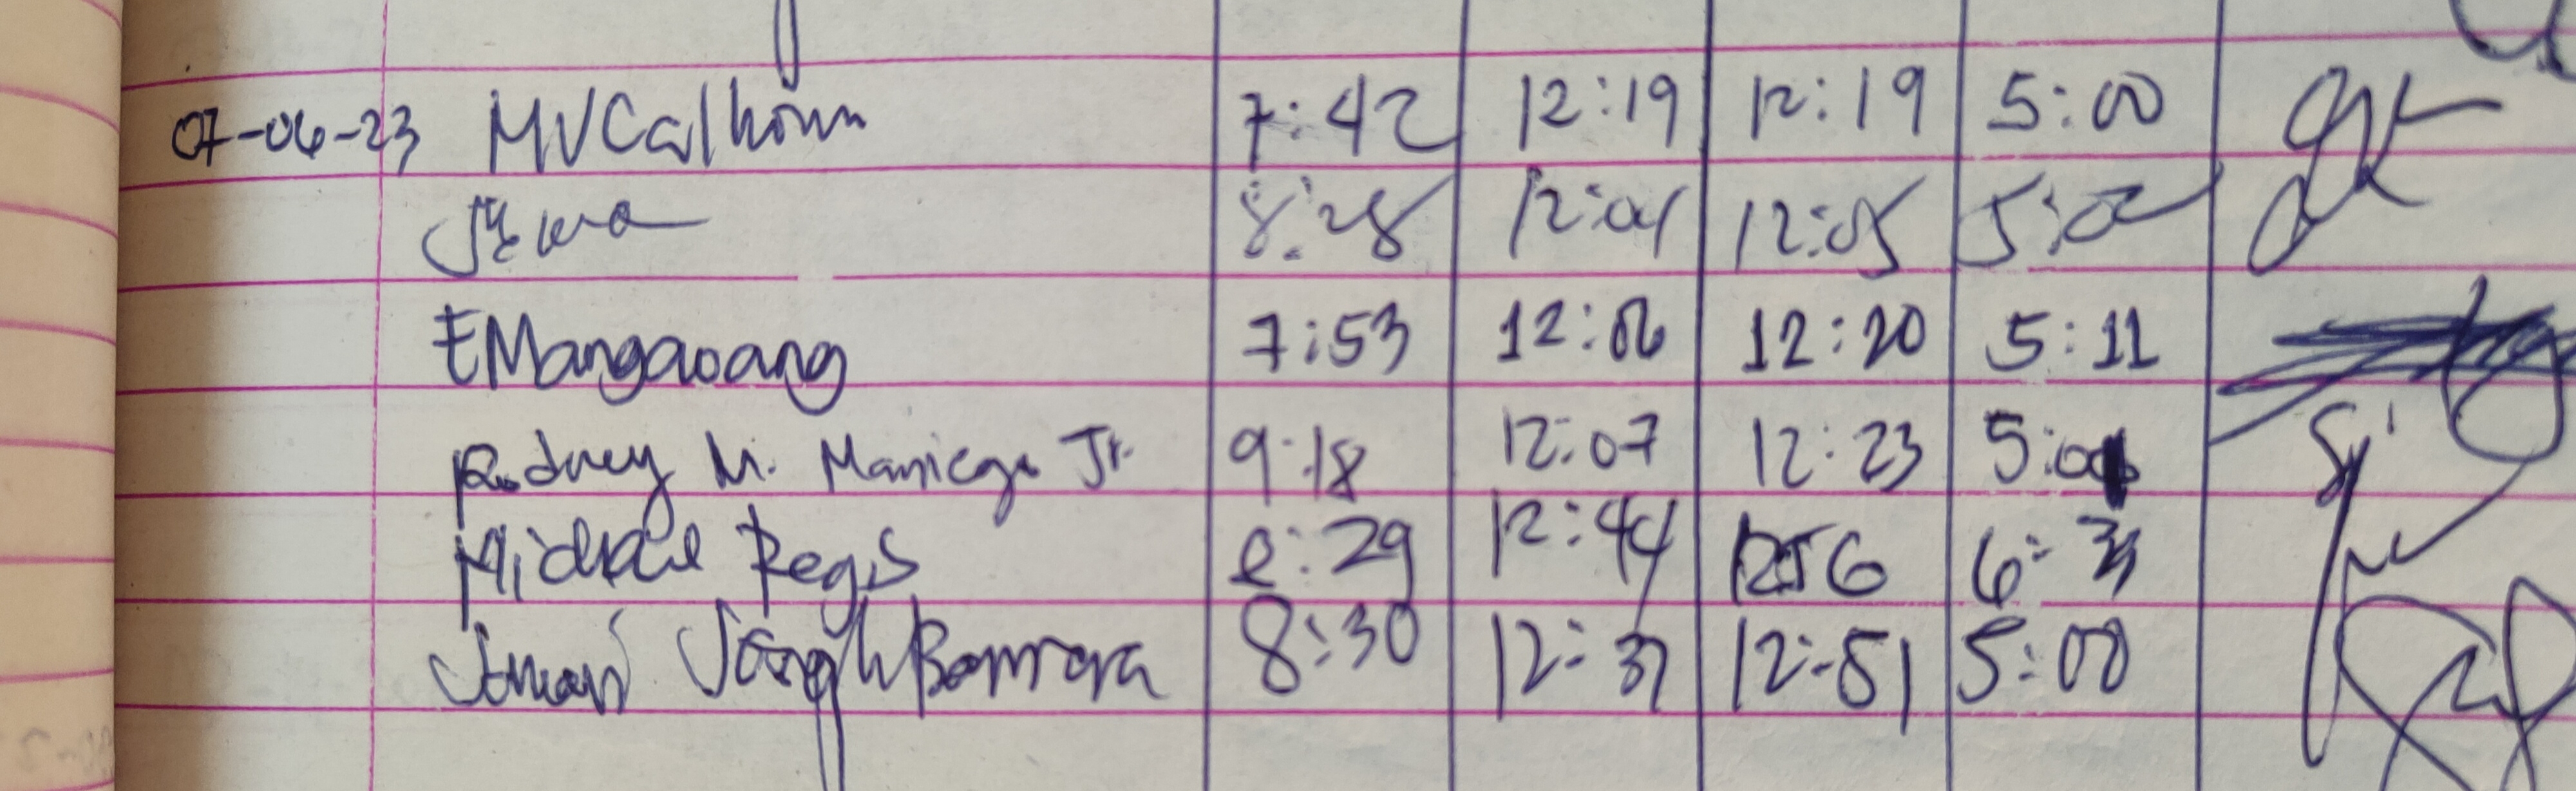 07-06-23 MVCalhoun 7:42 12:19 12:19 5:00
8:28 12:04 12:05 5:02
EMangaoang 7:53 12:06 12:20 5:11
Rodney M. Maniego Jr. 9:18 12:07 12:23
Michael Regis 8:29 12:44 1256
8:30 12:37 12:51 5:08